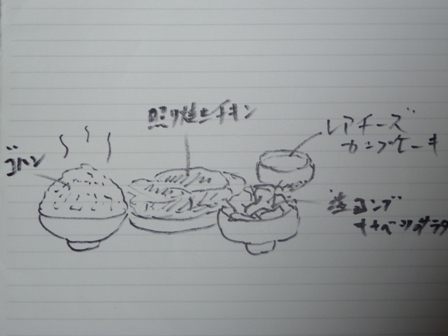 ゴハン
照り焼きチキン
レアチーズ
カップケーキ
塩コンブ
キャベツサラダ